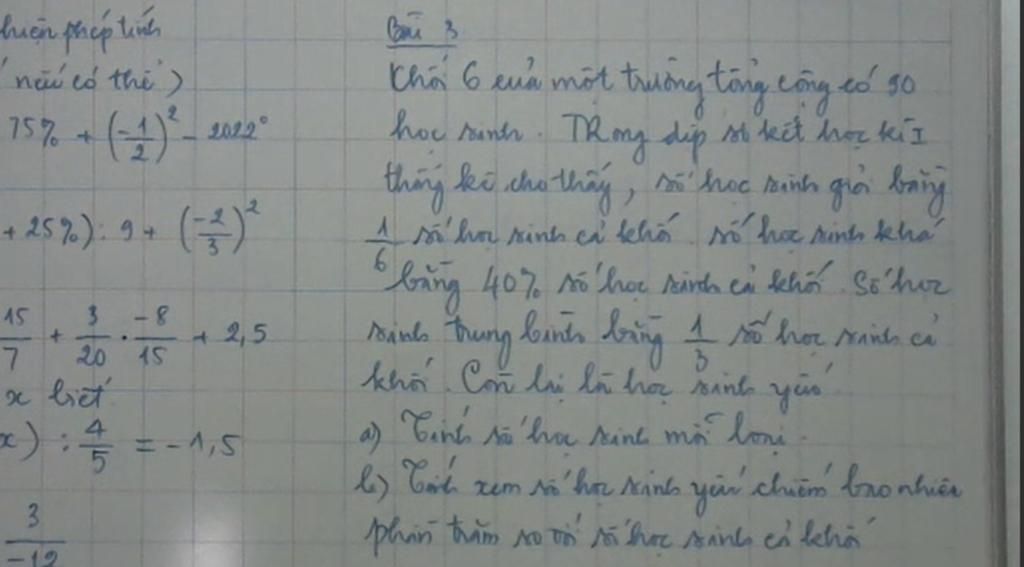 hiện phép tính
nếu có thể)
75% + (-1/2)² - 2022⁰
+ 25%) : 9 + (-2/3)²
15/7 + 3/20 . -8/15 + 2,5
x biết
x) : 4/5 = -1,5
3/-12
Bài 3
Khối 6 của một trường tổng cộng có 90
học sinh. TRong dịp sơ kết học kì I
thống kê cho thấy, số học sinh giỏi bằng
1/6 số học sinh cả khối. số học sinh khá
bằng 40% số học sinh cả khối. Số học
sinh trung bình bằng 1/3 số học sinh cả
khối. Còn lại là học sinh yếu
a) Tính số học sinh mỗi loại.
b) Tính xem số học sinh yếu chiếm bao nhiêu
phần trăm so với số học sinh cả khối